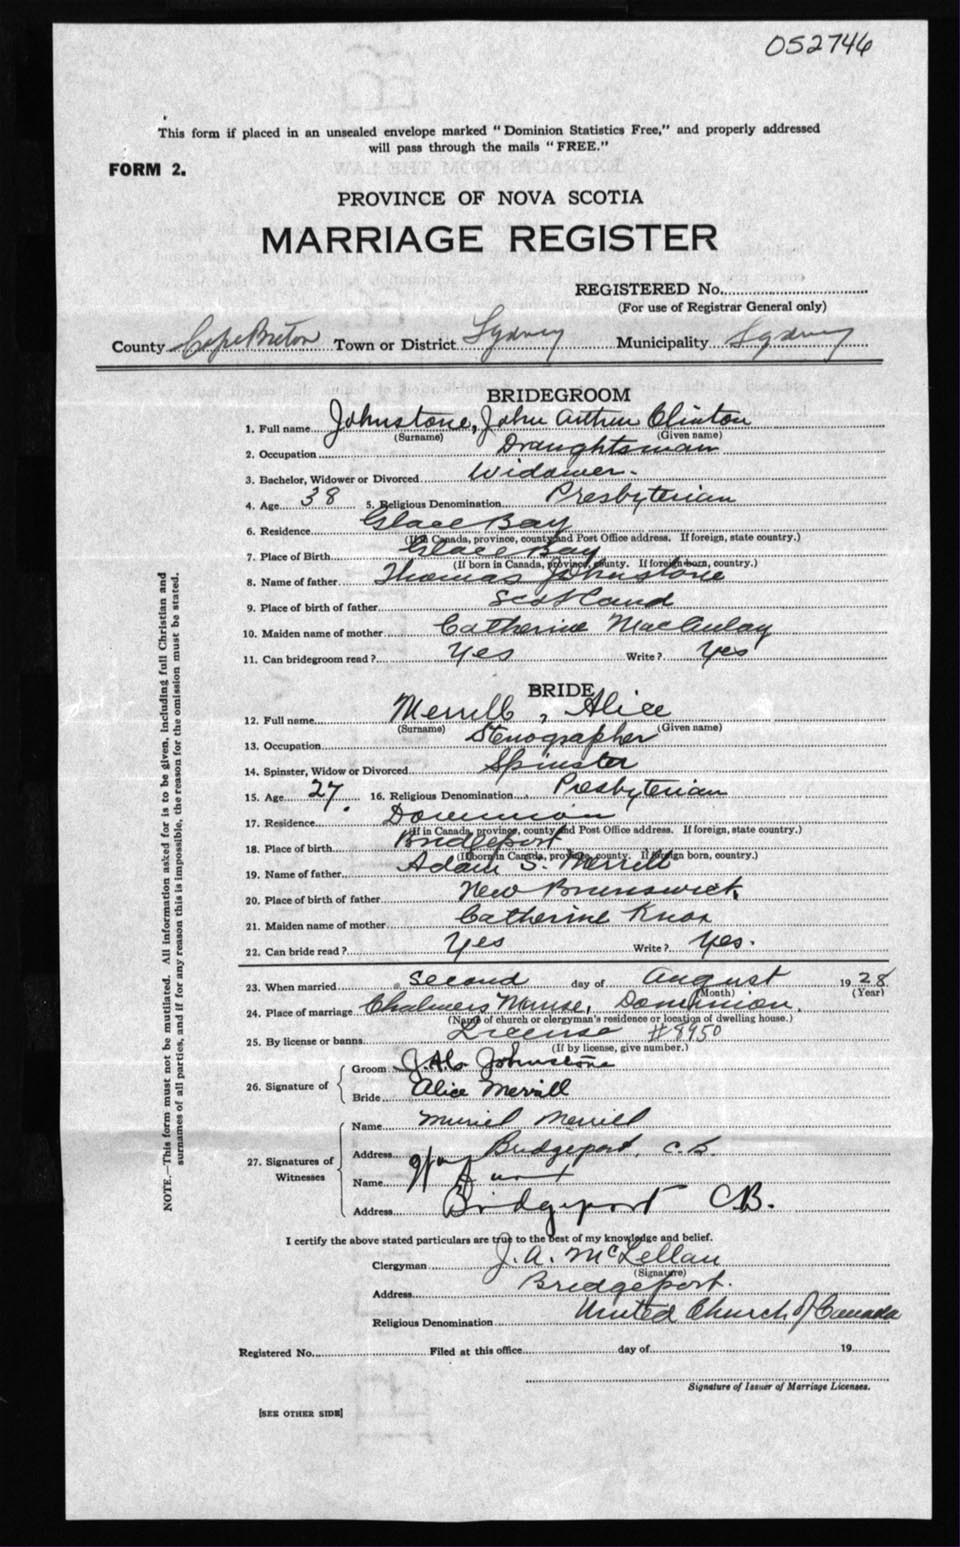 052746
This form if placed in an unsealed envelope marked "Dominion Statistics Free," and properly addressed
will pass through the mails "FREE."
FORM 2.
PROVINCE OF NOVA SCOTIA
MARRIAGE REGISTER
REGISTERED No.
(For use of Registrar General only)
County Cape Breton Town or District Sydney Municipality Sydney
BRIDEGROOM
1. Full name Johnstone, John Arthur Clinton
(Surname) (Given name)
2. Occupation Draughtsman
3. Bachelor, Widower or Divorced Widower.
4. Age 38 5. Religious Denomination Presbyterian
6. Residence Glace Bay
(If in Canada, province, county and Post Office address. If foreign, state country.)
7. Place of Birth Glace Bay
(If born in Canada, province, county. If foreign born, country.)
8. Name of father Thomas Johnstone
9. Place of birth of father Scotland
10. Maiden name of mother Catherine MacAulay
11. Can bridegroom read? Yes Write? Yes
BRIDE
12. Full name Merrill, Alice
(Surname) (Given name)
13. Occupation Stenographer
14. Spinster, Widow or Divorced Spinster
15. Age 27. 16. Religious Denomination Presbyterian
17. Residence Dominion
(If in Canada, province, county and Post Office address. If foreign, state country.)
18. Place of birth Bridgeport
(If born in Canada, province, county. If foreign born, country.)
19. Name of father Adam S. Merrill
20. Place of birth of father New Brunswick
21. Maiden name of mother Catherine Knox
22. Can bride read? Yes Write? Yes.
23. When married Second day of August 1928
(Month) (Year)
24. Place of marriage Chalmers Manse, Dominion
(Name of church or clergyman's residence or location of dwelling house.)
25. By license or banns License #8950
(If by license, give number.)
26. Signature of
Groom Johnstone
Bride Alice Merrill
27. Signatures of Witnesses
Name Muriel Merrill
Address Bridgeport, C.B.
Name
Address Bridgeport CB.
I certify the above stated particulars are true to the best of my knowledge and belief.
Clergyman J. A. McLellan
(Signature)
Address Bridgeport.
Religious Denomination United Church of Canada
Registered No. Filed at this office day of 19
Signature of Issuer of Marriage Licenses.
[SEE OTHER SIDE]
NOTE.—This form must not be mutilated. All information asked for is to be given, including full Christian and
surnames of all parties, and if for any reason this is impossible, the reason for the omission must be stated.